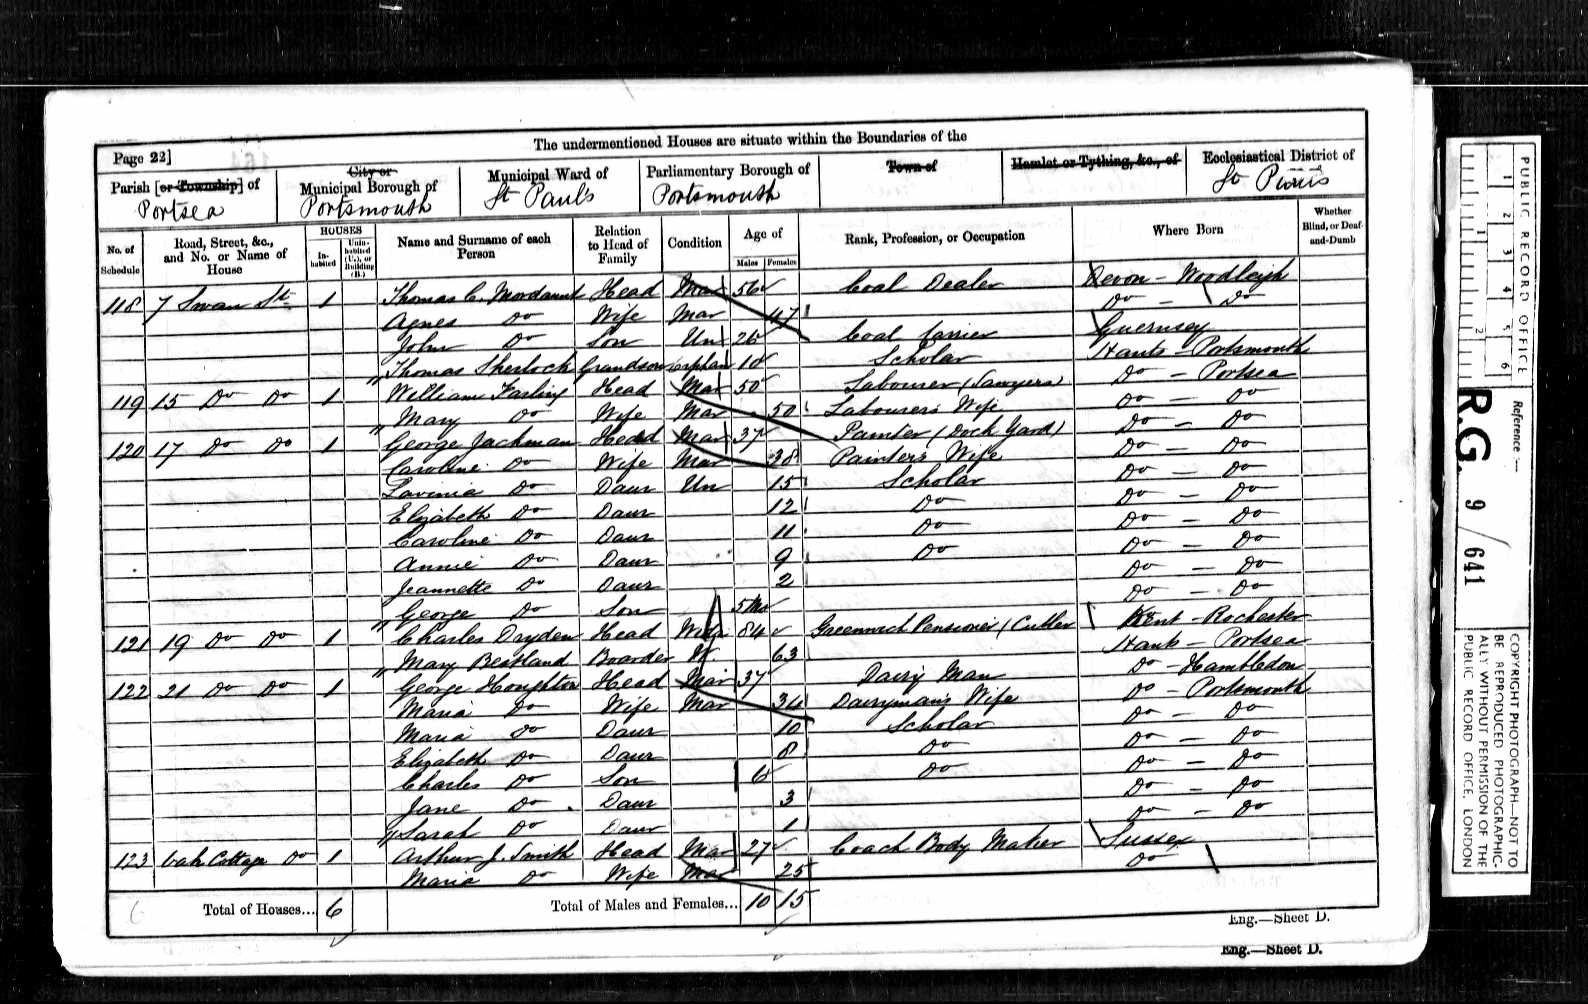 The undermentioned Houses are situate within the Boundaries of the
Page 22]
Parish [or Township] of
Portsea
City or
Municipal Borough of
Portsmouth
Municipal Ward of
St Paul's
Parliamentary Borough of
Portsmouth
Town of
Hamlet or Tything, &c., of
Ecclesiastical District of
No. of Schedule
Road, Street, &c., and No. or Name of House
HOUSES
In-habited
Unin-habited (U.), or Building (B.)
Name and Surname of each Person
Relation to Head of Family
Condition
Age of
Males
Females
Rank, Profession, or Occupation
Where Born
Whether Blind, or Deaf-and-Dumb
118 7 Swan St 1 Thomas C. Mordaunt Head Mar 56 Coal Dealer Devon - Woodleigh
Agnes Do Wife Mar 47 Do - Do
John Do Son Un 26 Coal Carrier Guernsey
Thomas Sherlock Grandson orphan 10 Scholar Hants - Portsmouth
119 15 Do Do 1 William Farling Head Mar 50 Labourer (Sawyers) Do - Portsea
Mary Do Wife Mar 50 Labourer's Wife Do - Do
120 17 Do Do 1 George Jackman Head Mar 37 Painter (Dock Yard) Do - Do
Caroline Do Wife Mar 38 Painter's Wife Do - Do
Lavinia Do Daur Un 15 Scholar Do - Do
Elizabeth Do Daur 12 Do Do - Do
Caroline Do Daur 11 Do Do - Do
Annie Do Daur 9 Do Do - Do
Jeannette Do Daur 2 Do - Do
George Do Son 5 Mo Do - Do
121 19 Do Do 1 Charles Dryden Head 84 Greenwich Pensioner (Cutler Kent - Rochester
Mary Bestland Boarder W. 63 Hants - Portsea
122 21 Do Do 1 George Houghton Head Mar 37 Dairy Man Do - Hambledon
Maria Do Wife Mar 34 Dairyman's Wife Do - Portsmouth
Maria Do Daur 10 Scholar Do - Do
Elizabeth Do Daur 8 Do Do - Do
Charles Do Son 6 Do Do - Do
Jane Do Daur 3 Do - Do
Sarah Do Daur 1 Do - Do
123 Oak Cottage Do 1 Arthur J. Smith Head Mar 27 Coach Body Maker Sussex
Maria Do Wife Mar 25 Do
6 Total of Houses... 6 Total of Males and Females... 10 15
Eng.—Sheet D.
Eng.—Sheet D.
PUBLIC RECORD OFFICE
1 2 3 4 5 6
1 2
Reference :-
R.G. 9/641
COPYRIGHT PHOTOGRAPH—NOT TO
BE REPRODUCED PHOTOGRAPHIC-
ALLY WITHOUT PERMISSION OF THE
PUBLIC RECORD OFFICE, LONDON